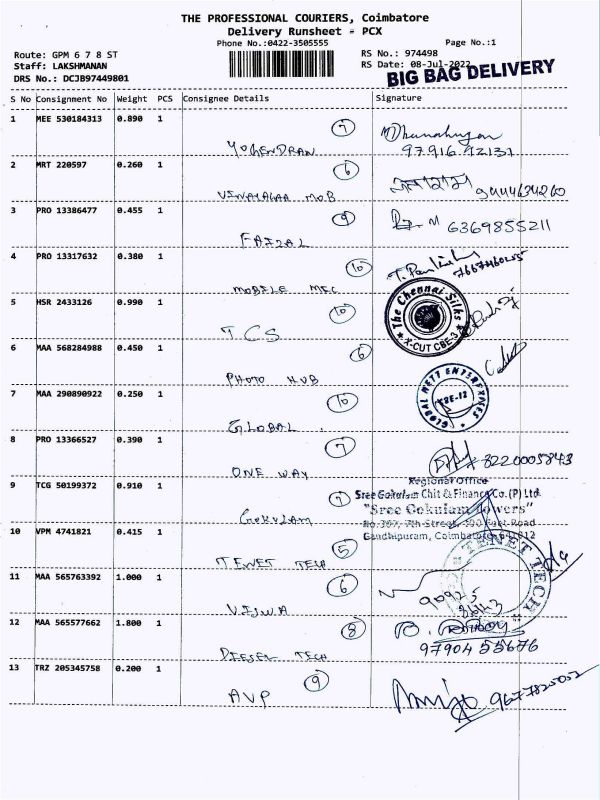 THE PROFESSIONAL COURIERS, Coimbatore
Delivery Runsheet - PCX
Phone No.:0422-3505555
Page No.:1
Route: GPM 6 7 8 ST
RS No.: 974498
Staff: LAKSHMANAN
RS Date: 08-Jul-2022
DRS No.: DCJB97449801
BIG BAG DELIVERY
S No Consignment No Weight PCS Consignee Details Signature
1 MEE 530184313 0.890 1 7
YOGENDRAN 97916 92131
2 MRT 220597 0.260 1 6
VINAYAGAA MOB 9444634260
3 PRO 13386477 0.455 1 9
FAIZAL 6369855211
4 PRO 13317632 0.380 1 10
MOBILE MEC 7667460255
5 HSR 2433126 0.990 1 10
TCS
The Chennai Silks
X-CUT CBE-3
6 MAA 568284988 0.450 1 6
PHOTO HUB
7 MAA 290890922 0.250 1 10
GLOBAL
GLOBAL NETT ENTERPRISES
CBE-12
8 PRO 13366527 0.390 1 7
ONE WAY 8220005843
9 TCG 50199372 0.910 1 7
GOKULAM
Regional Office
Sree Gokulam Chit & Finance Co. (P) Ltd.
"Sree Gokulam Towers"
No.307, 7th Street, 100 Feet Road
Gandhipuram, Coimbatore 641 012
10 VPM 4741821 0.415 1 5
TENET TECH
TENET TECH
11 MAA 565763392 1.000 1 6
VISWA 90925
12 MAA 565577662 1.800 1 8
DIESEL TECH 97904 55676
13 TRZ 205345758 0.200 1 9
AVP 9677825052